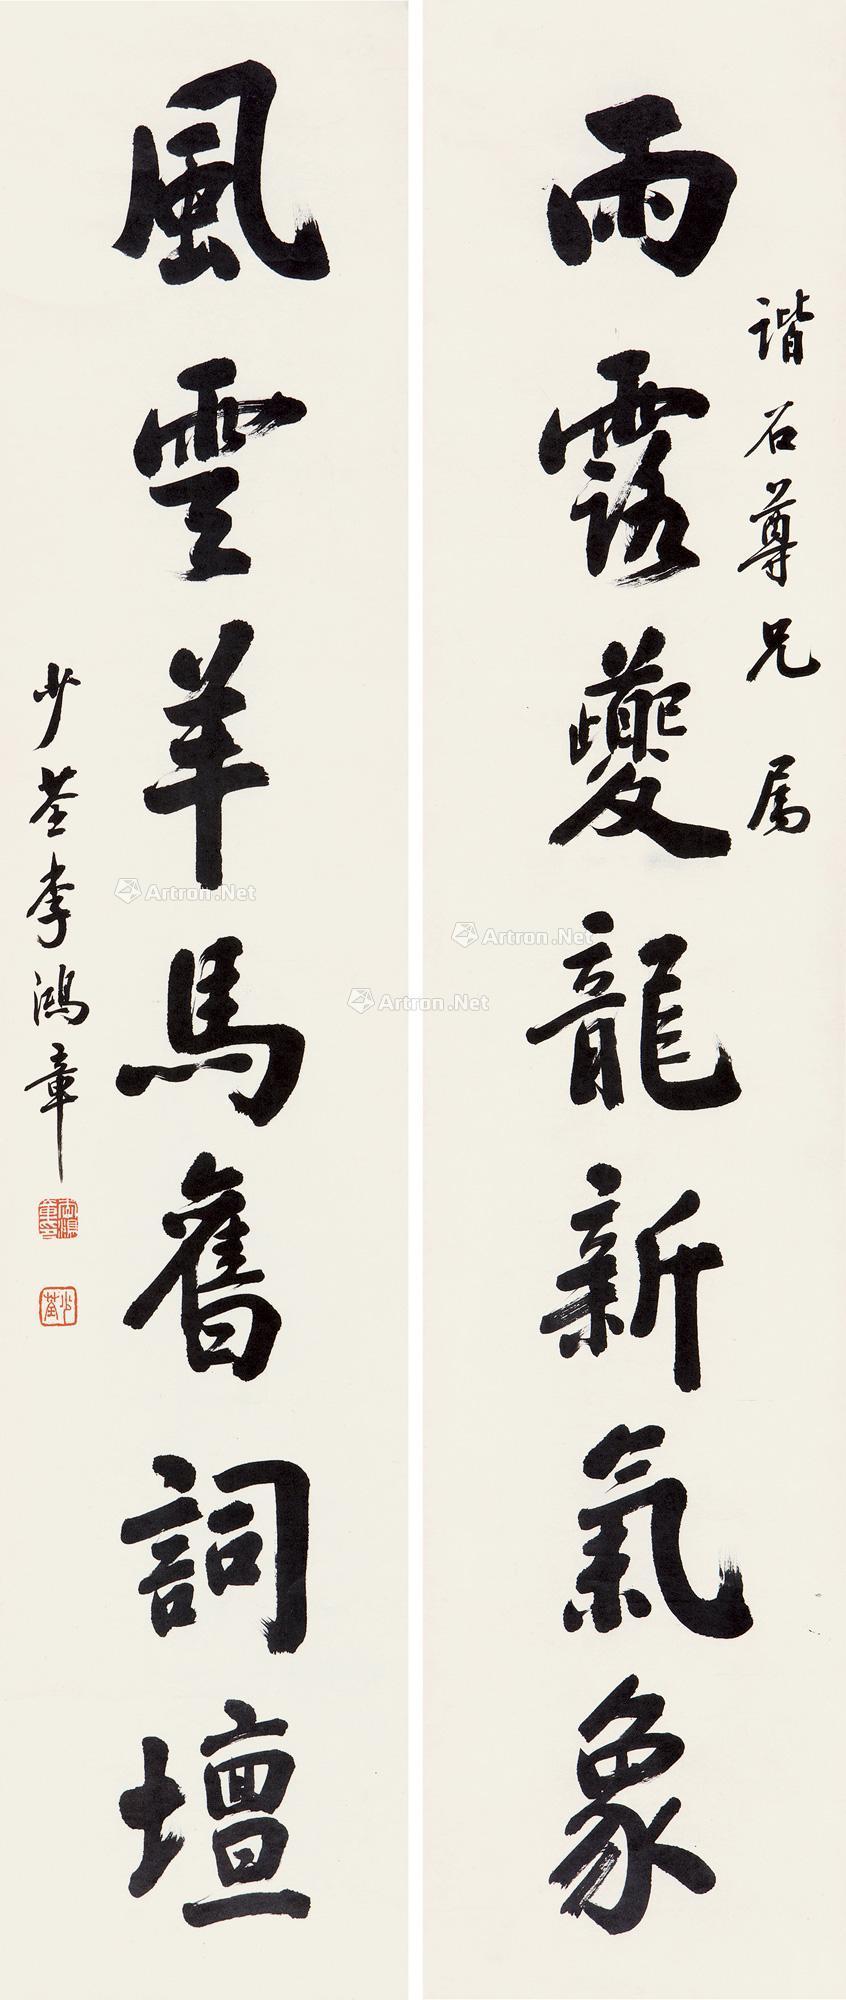 雨露夔龍新氣象
諧石尊兄屬
風雲羊馬舊詞壇
少荃李鴻章
少荃
Artron.Net
Artron.Net
Artron.Net